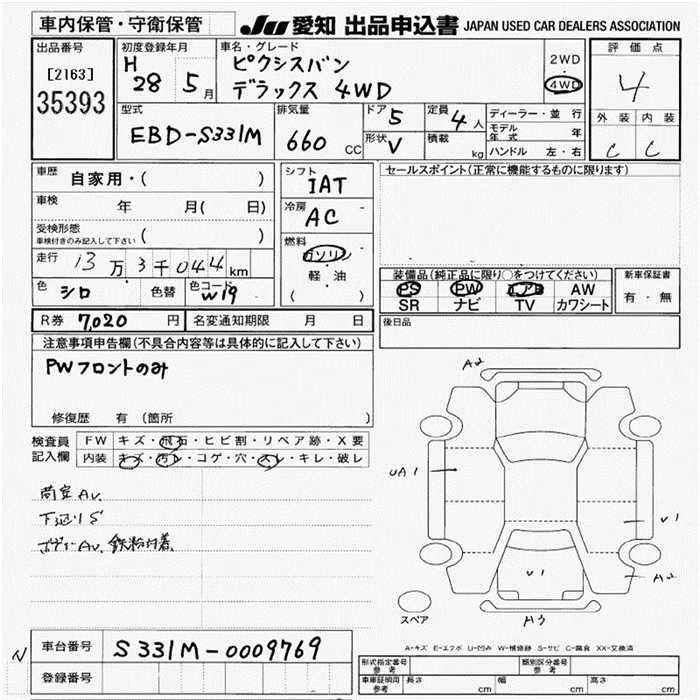 車内保管・守衛保管
JU 愛知 出品申込書 JAPAN USED CAR DEALERS ASSOCIATION
出品番号
[2163]
35393
初度登録年月
H 28 5月
車名・グレード
ピクシスバン
デラックス 4WD
2WD
4WD
評価点
4
外装 内装
C C
型式
EBD-S331M
排気量
660 CC
ドア 5
形状 V
定員 4 人
積載 kg
ディーラー・並行
モデル年式 年
ハンドル 左・右
車歴 自家用・( )
車検 年 月( 日)
受検形態
車検付きのみ記入して下さい ( )
走行 13万3千044km
色 シロ 色替 色コード W19
シフト IAT
冷房 AC
燃料
ガソリン
軽・油
( )
セールスポイント(正常に機能するものに限ります)
装備品(純正品に限り○をつけてください)
PS PW エアB AW
SR ナビ TV カワシート
新車保証書
有・無
R券 7,020 円 名変通知期限 月 日
後日品
注意事項申告欄(不具合内容等は具体的に記入して下さい)
PWフロントのみ
修復歴 有 (箇所 )
検査員記入欄
FW キズ・飛石・ヒビ割・リペア跡・X要
内装 キズ・汚レ・コゲ・穴・スレ・キレ・破レ
荷室Av.
下廻りS
ボディーAv. 鉄粉付着
A2
UA1
V1
V1
A2
A3
スペア
A-キズ E-エクボ U-凹み W-補修跡 S-サビ C-腐食 XX-交換済
N
車台番号 S331M-0009769
登録番号
形式指定番号 参考
類別区分番号 参考
車庫証明用 参考 長さ cm 幅 cm 高さ cm